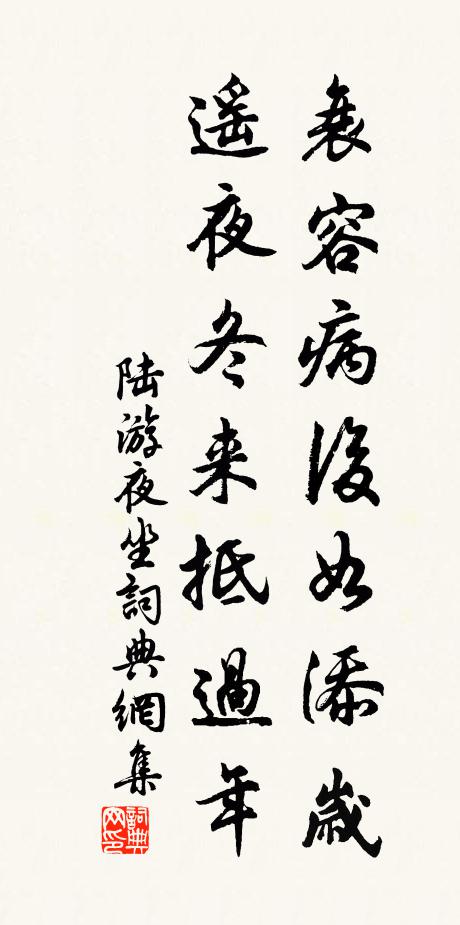 衰容病後如添歲
遥夜冬来抵過年
陆游夜坐詞典網集
詞典网印